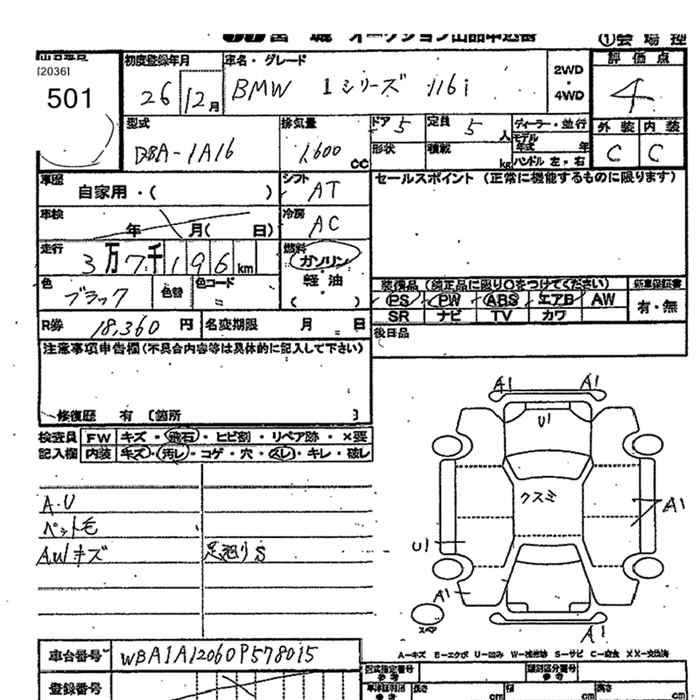 宮城 オークション出品申込書 ①会場控
[2036]
501
初度登録年月 26 12月
車名・グレード BMW 1シリーズ 116i
2WD・4WD
評価点 4
型式 DBA-1A16
排気量 1,600 CC
ドア 5 定員 5 人
形状 積載 kg
ディーラー・並行
モデル年式 年
ハンドル 左・右
外装 内装
C C
車歴 自家用・( )
シフト AT
セールスポイント (正常に機能するものに限ります)
車検 年 月( 日)
冷房 AC
走行 3万7千196km
燃料 ガソリン・軽油 ( )
色 ブラック 色替 色コード
装備品 (純正品に限り○をつけてください) 新車保証書
PS PW ABS エアB AW 有・無
SR ナビ TV カワ
R券 18,360円 名変期限 月 日
後日品
注意事項申告欄(不具合内容等は具体的に記入して下さい)
修復歴 有 〔箇所 〕
検査員 FW キズ・飛石・ヒビ割・リペア跡・×要
記入欄 内装 キズ・汚レ・コゲ・穴・スレ・キレ・破レ
A.U
ペット毛
A.Wキズ 足廻りS
A1 A1
U1
クスミ
A1
U1
A1
A1
スペア
A=キズ E=エクボ U=凹み W=補修跡 S=サビ C=腐食 XX=交換済
車台番号 WBA1A12060P578015
型式指定番号 参考 類別区分番号 参考
登録番号
車体寸法 参考 長さ cm 幅 cm 高さ cm